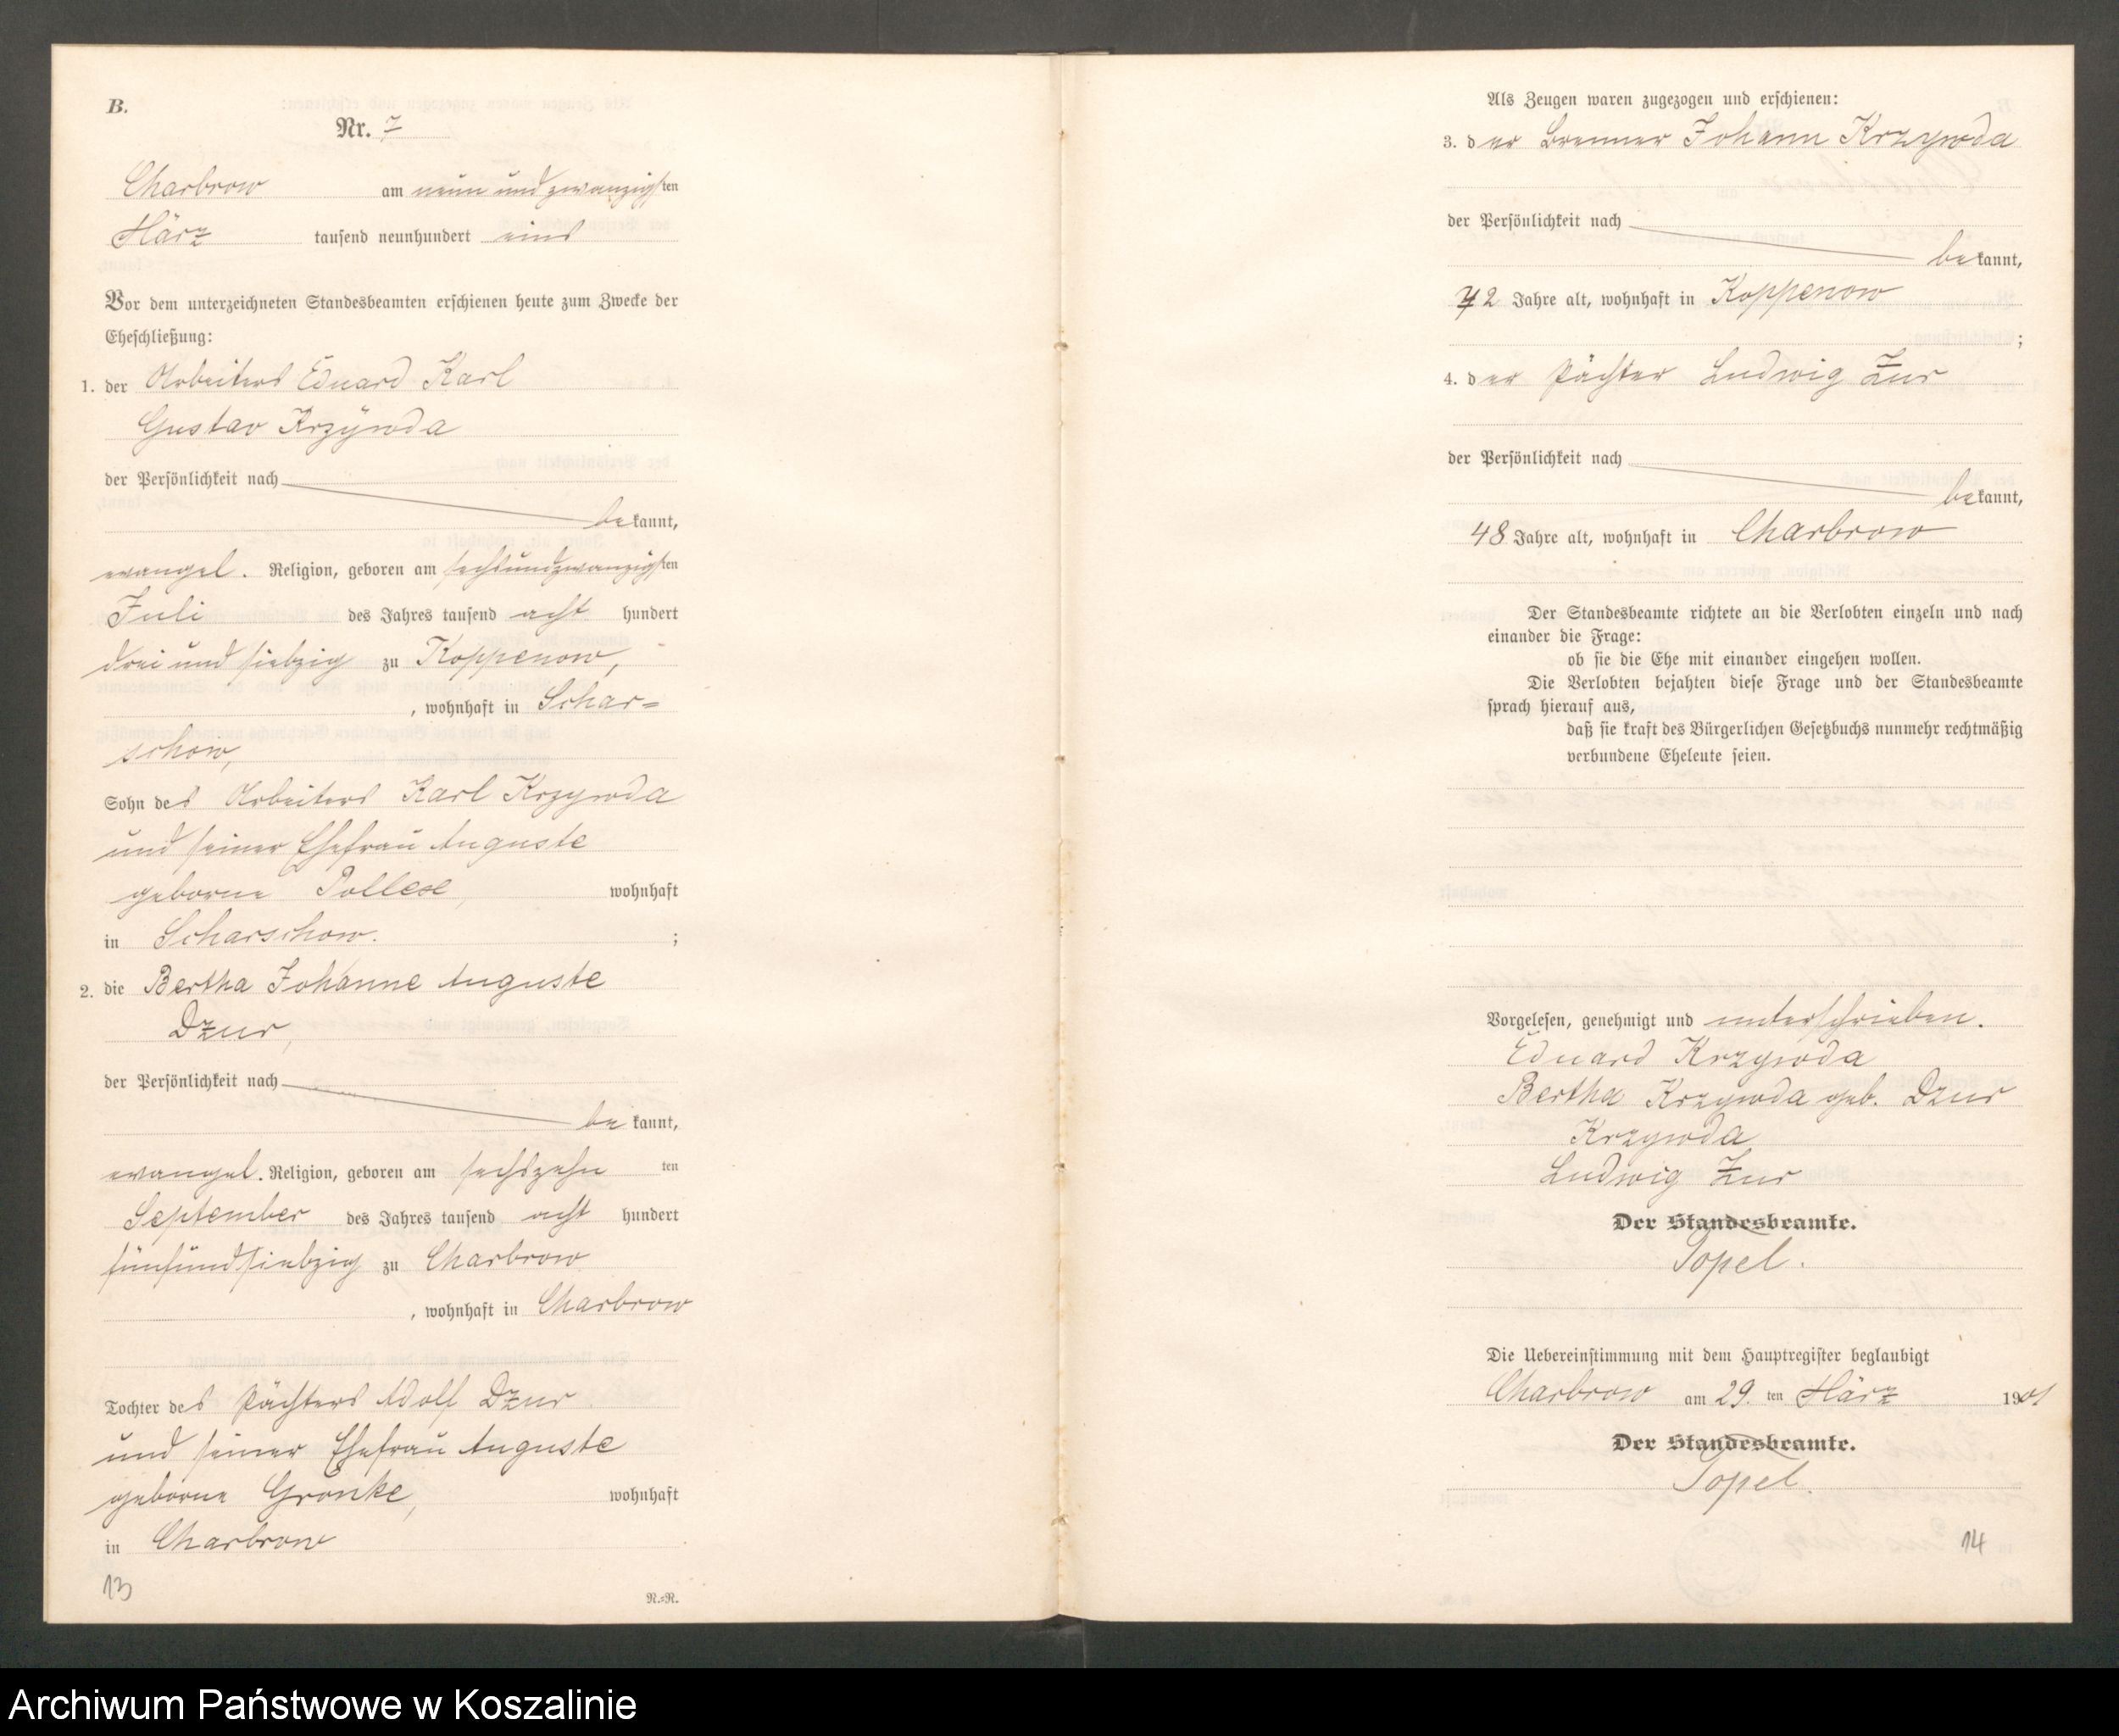 B.
Nr. 7
Charbrow am neun und zwanzigsten
März tausend neunhundert eins
Vor dem unterzeichneten Standesbeamten erschienen heute zum Zwecke der
Eheschließung:
1. der Arbeiters Eduard Karl
Gustav Krzÿwda
der Persönlichkeit nach
bekannt,
evangel. Religion, geboren am sechsundzwanzigsten
Juli des Jahres tausend acht hundert
drei und siebzig zu Koppenow,
, wohnhaft in Schar=
schow,
Sohn des Arbeiters Karl Krzywda
und seiner Ehefrau Auguste
geborne Pollexe, wohnhaft
in Scharschow. ;
2. die Bertha Johanne Auguste
Dzur,
der Persönlichkeit nach
bekannt,
evangel. Religion, geboren am sechszehn ten
September des Jahres tausend acht hundert
fünfundsiebzig zu Charbrow
, wohnhaft in Charbrow
Tochter des Pächters Adolf Dzur
und seiner Ehefrau Auguste
geborne Gronke, wohnhaft
in Charbrow
13
N.=R.
Als Zeugen waren zugezogen und erschienen:
3. der Brenner Johann Krzywda
der Persönlichkeit nach
bekannt,
42 Jahre alt, wohnhaft in Koppenow
;
4. der Pächter Ludwig Zur
der Persönlichkeit nach
bekannt,
48 Jahre alt, wohnhaft in Charbrow
Der Standesbeamte richtete an die Verlobten einzeln und nach
einander die Frage:
ob sie die Ehe mit einander eingehen wollen.
Die Verlobten bejahten diese Frage und der Standesbeamte
sprach hierauf aus,
daß sie kraft des Bürgerlichen Gesetzbuchs nunmehr rechtmäßig
verbundene Eheleute seien.
Vorgelesen, genehmigt und unterschrieben.
Eduard Krzywda
Bertha Krzywda geb. Dzur
Krzywda
Ludwig Zur
Der Standesbeamte.
Popel.
Die Uebereinstimmung mit dem Hauptregister beglaubigt
Charbrow am 29. ten März 1901
Der Standesbeamte.
Popel.
14
Archiwum Państwowe w Koszalinie